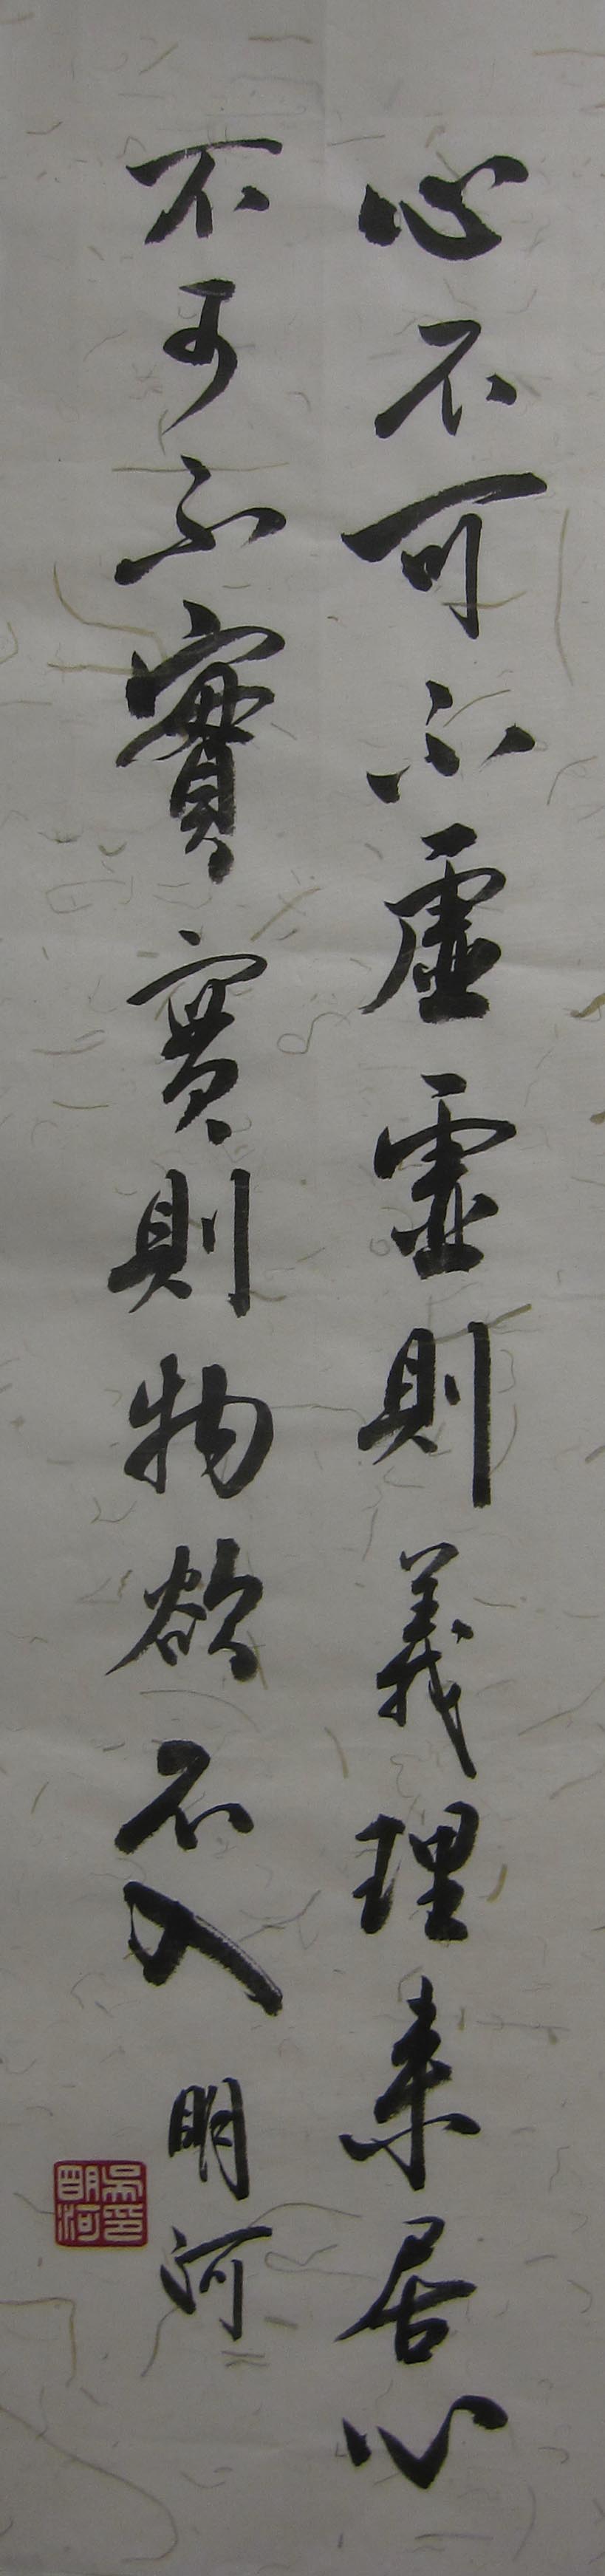 心不可不虛虛則義理來居心
不可不實實則物欲不入 明河
吳明河印